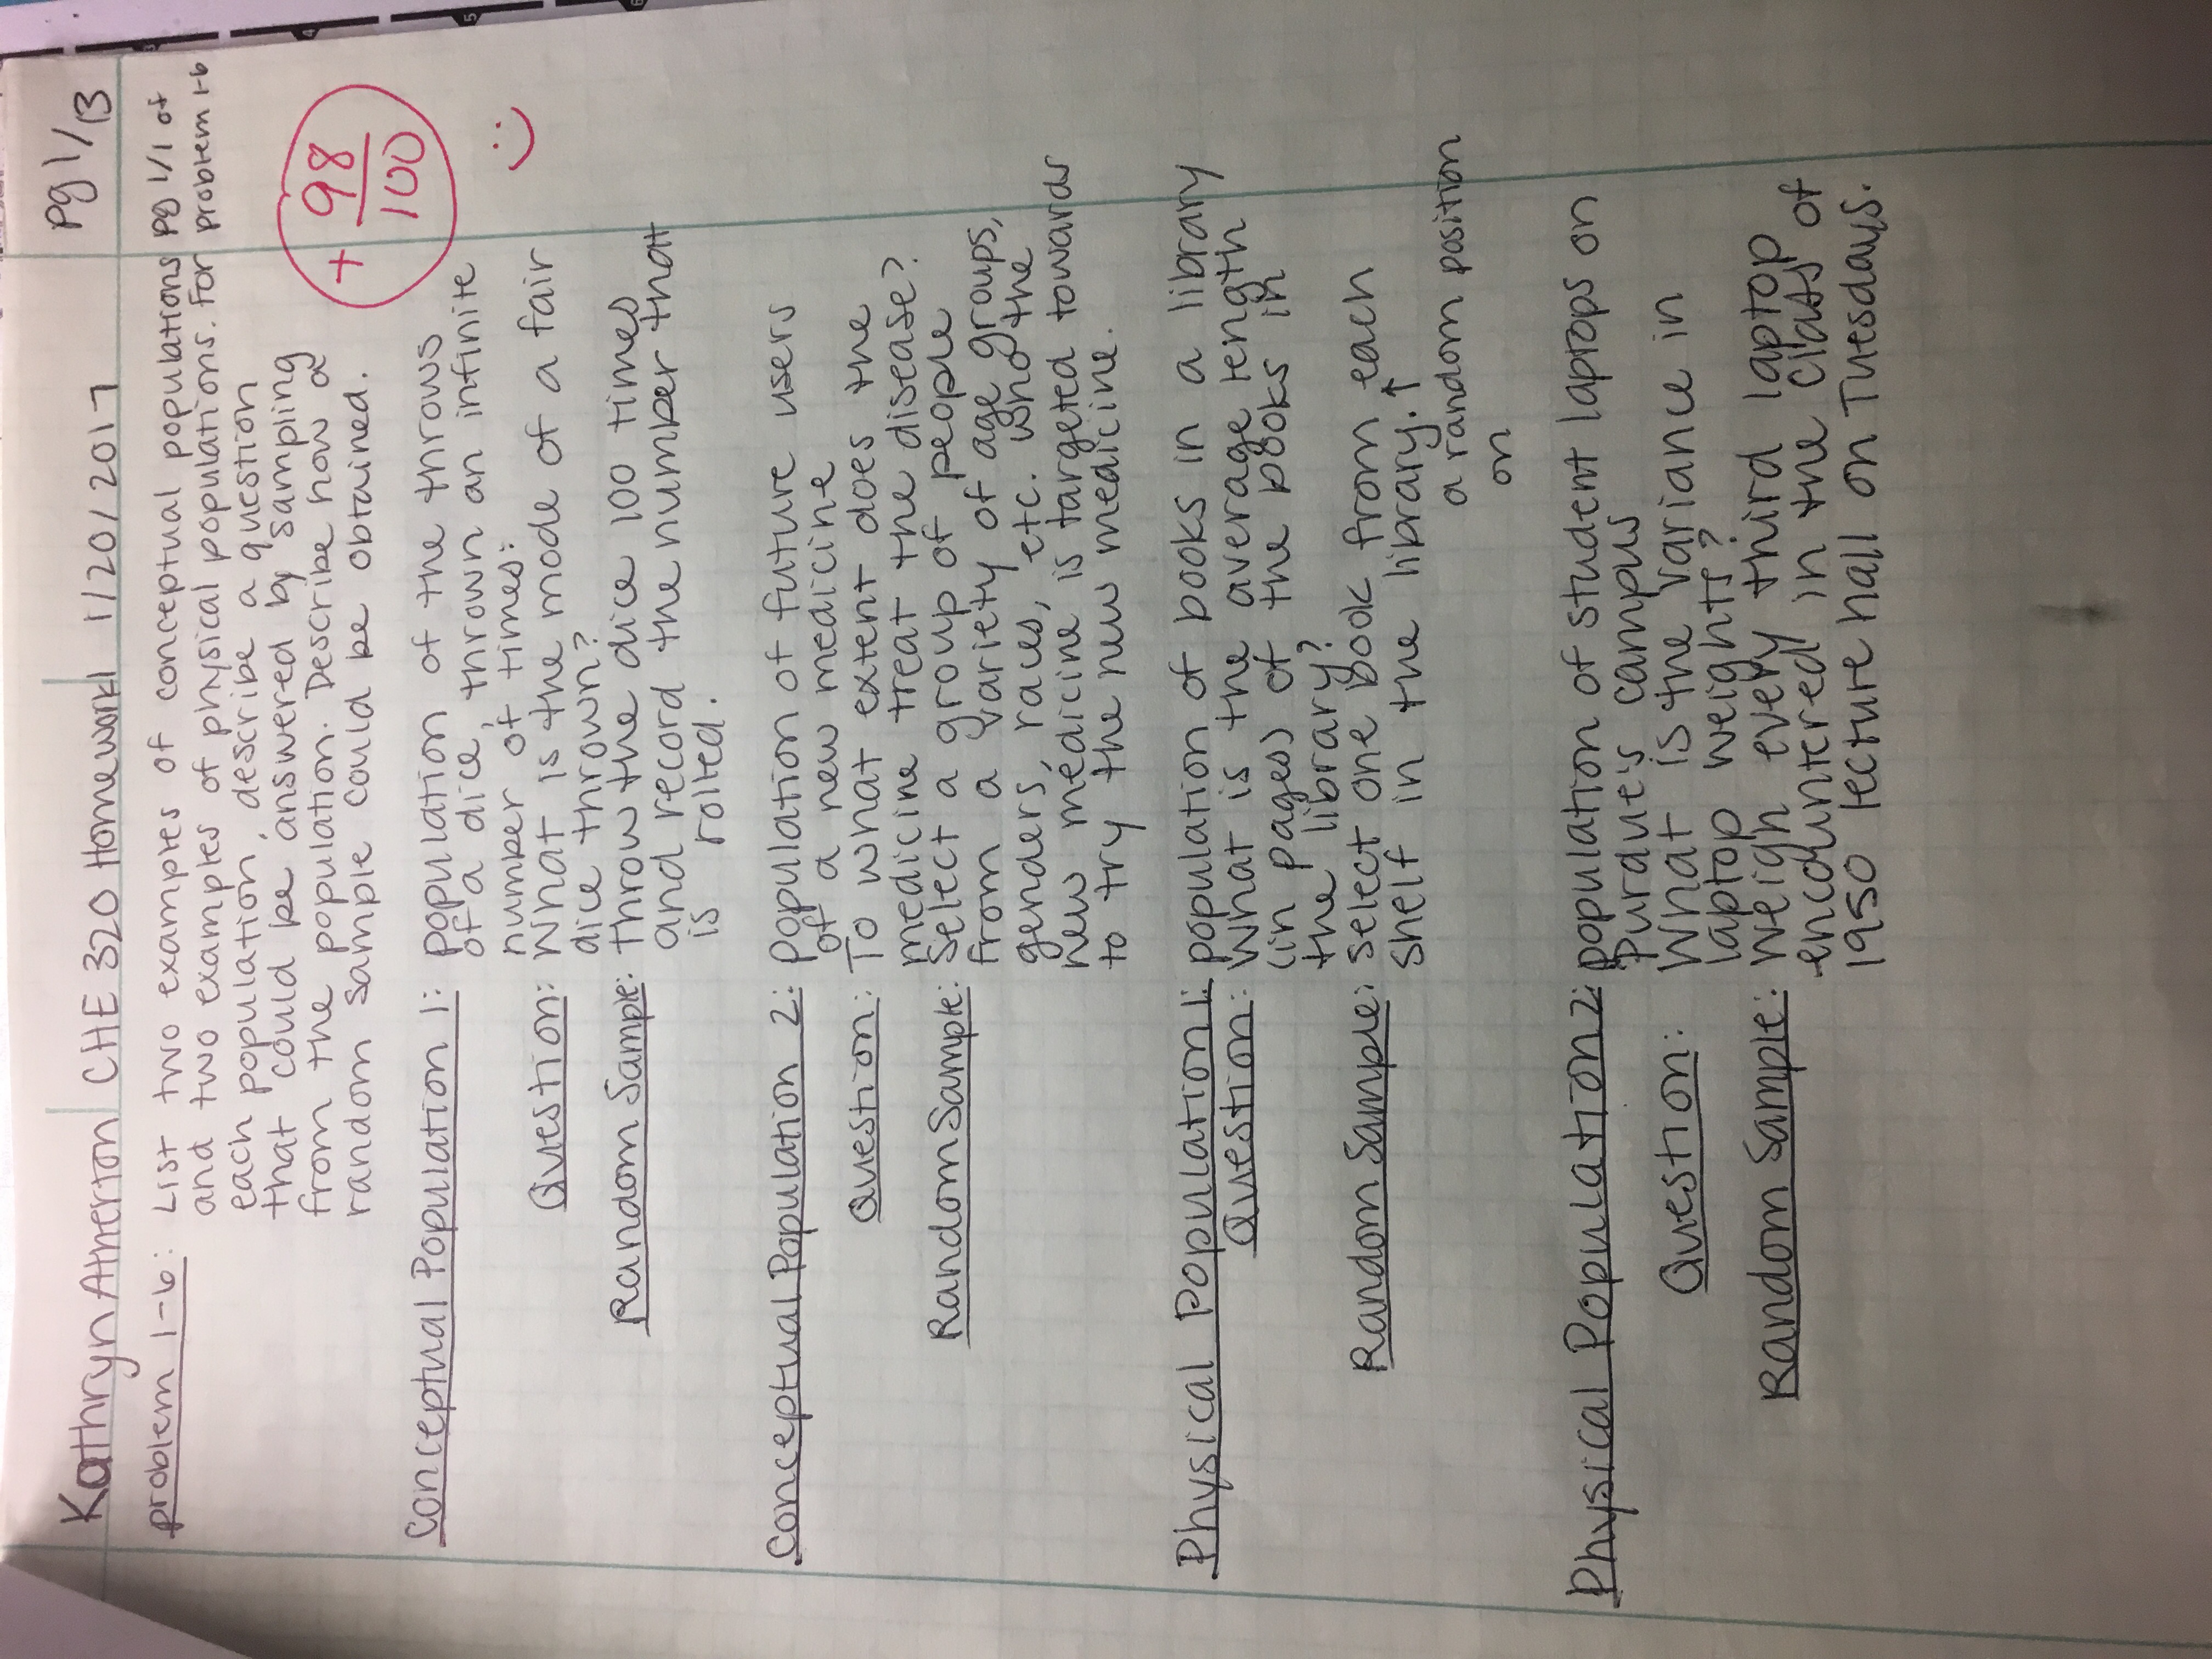 Kathryn Atherton CHE 320 Homework 1 1/20/2017 pg 1/13
problem 1-6: List two examples of conceptual populations pg 1/1 of
and two examples of physical populations. For problem 1-6
each population, describe a question
that could be answered by sampling
from the population. Describe how a
random sample could be obtained.
+ 98
100
Conceptual Population 1: population of the throws
of a dice, thrown an infinite
number of times:
Question: What is the mode of a fair
dice thrown?
Random Sample: Throw the dice 100 times
and record the number that
is rolled.
Conceptual Population 2: population of future users
of a new medicine
Question: To what extent does the
medicine treat the disease?
Random Sample: Select a group of people
from a variety of age groups,
genders, races, etc. who the
new medicine is targeted towards
to try the new medicine.
Physical Population 1: population of books in a library
Question: What is the average length
(in pages) of the books in
the library?
Random Sample: select one book from each
shelf in the library. ↑
a random position
on
Physical Population 2: population of student laptops on
Purdue's campus
Question: What is the variance in
laptop weights?
Random Sample: Weigh every third laptop
encountered in the Class of
1950 lecture hall on Tuesdays.